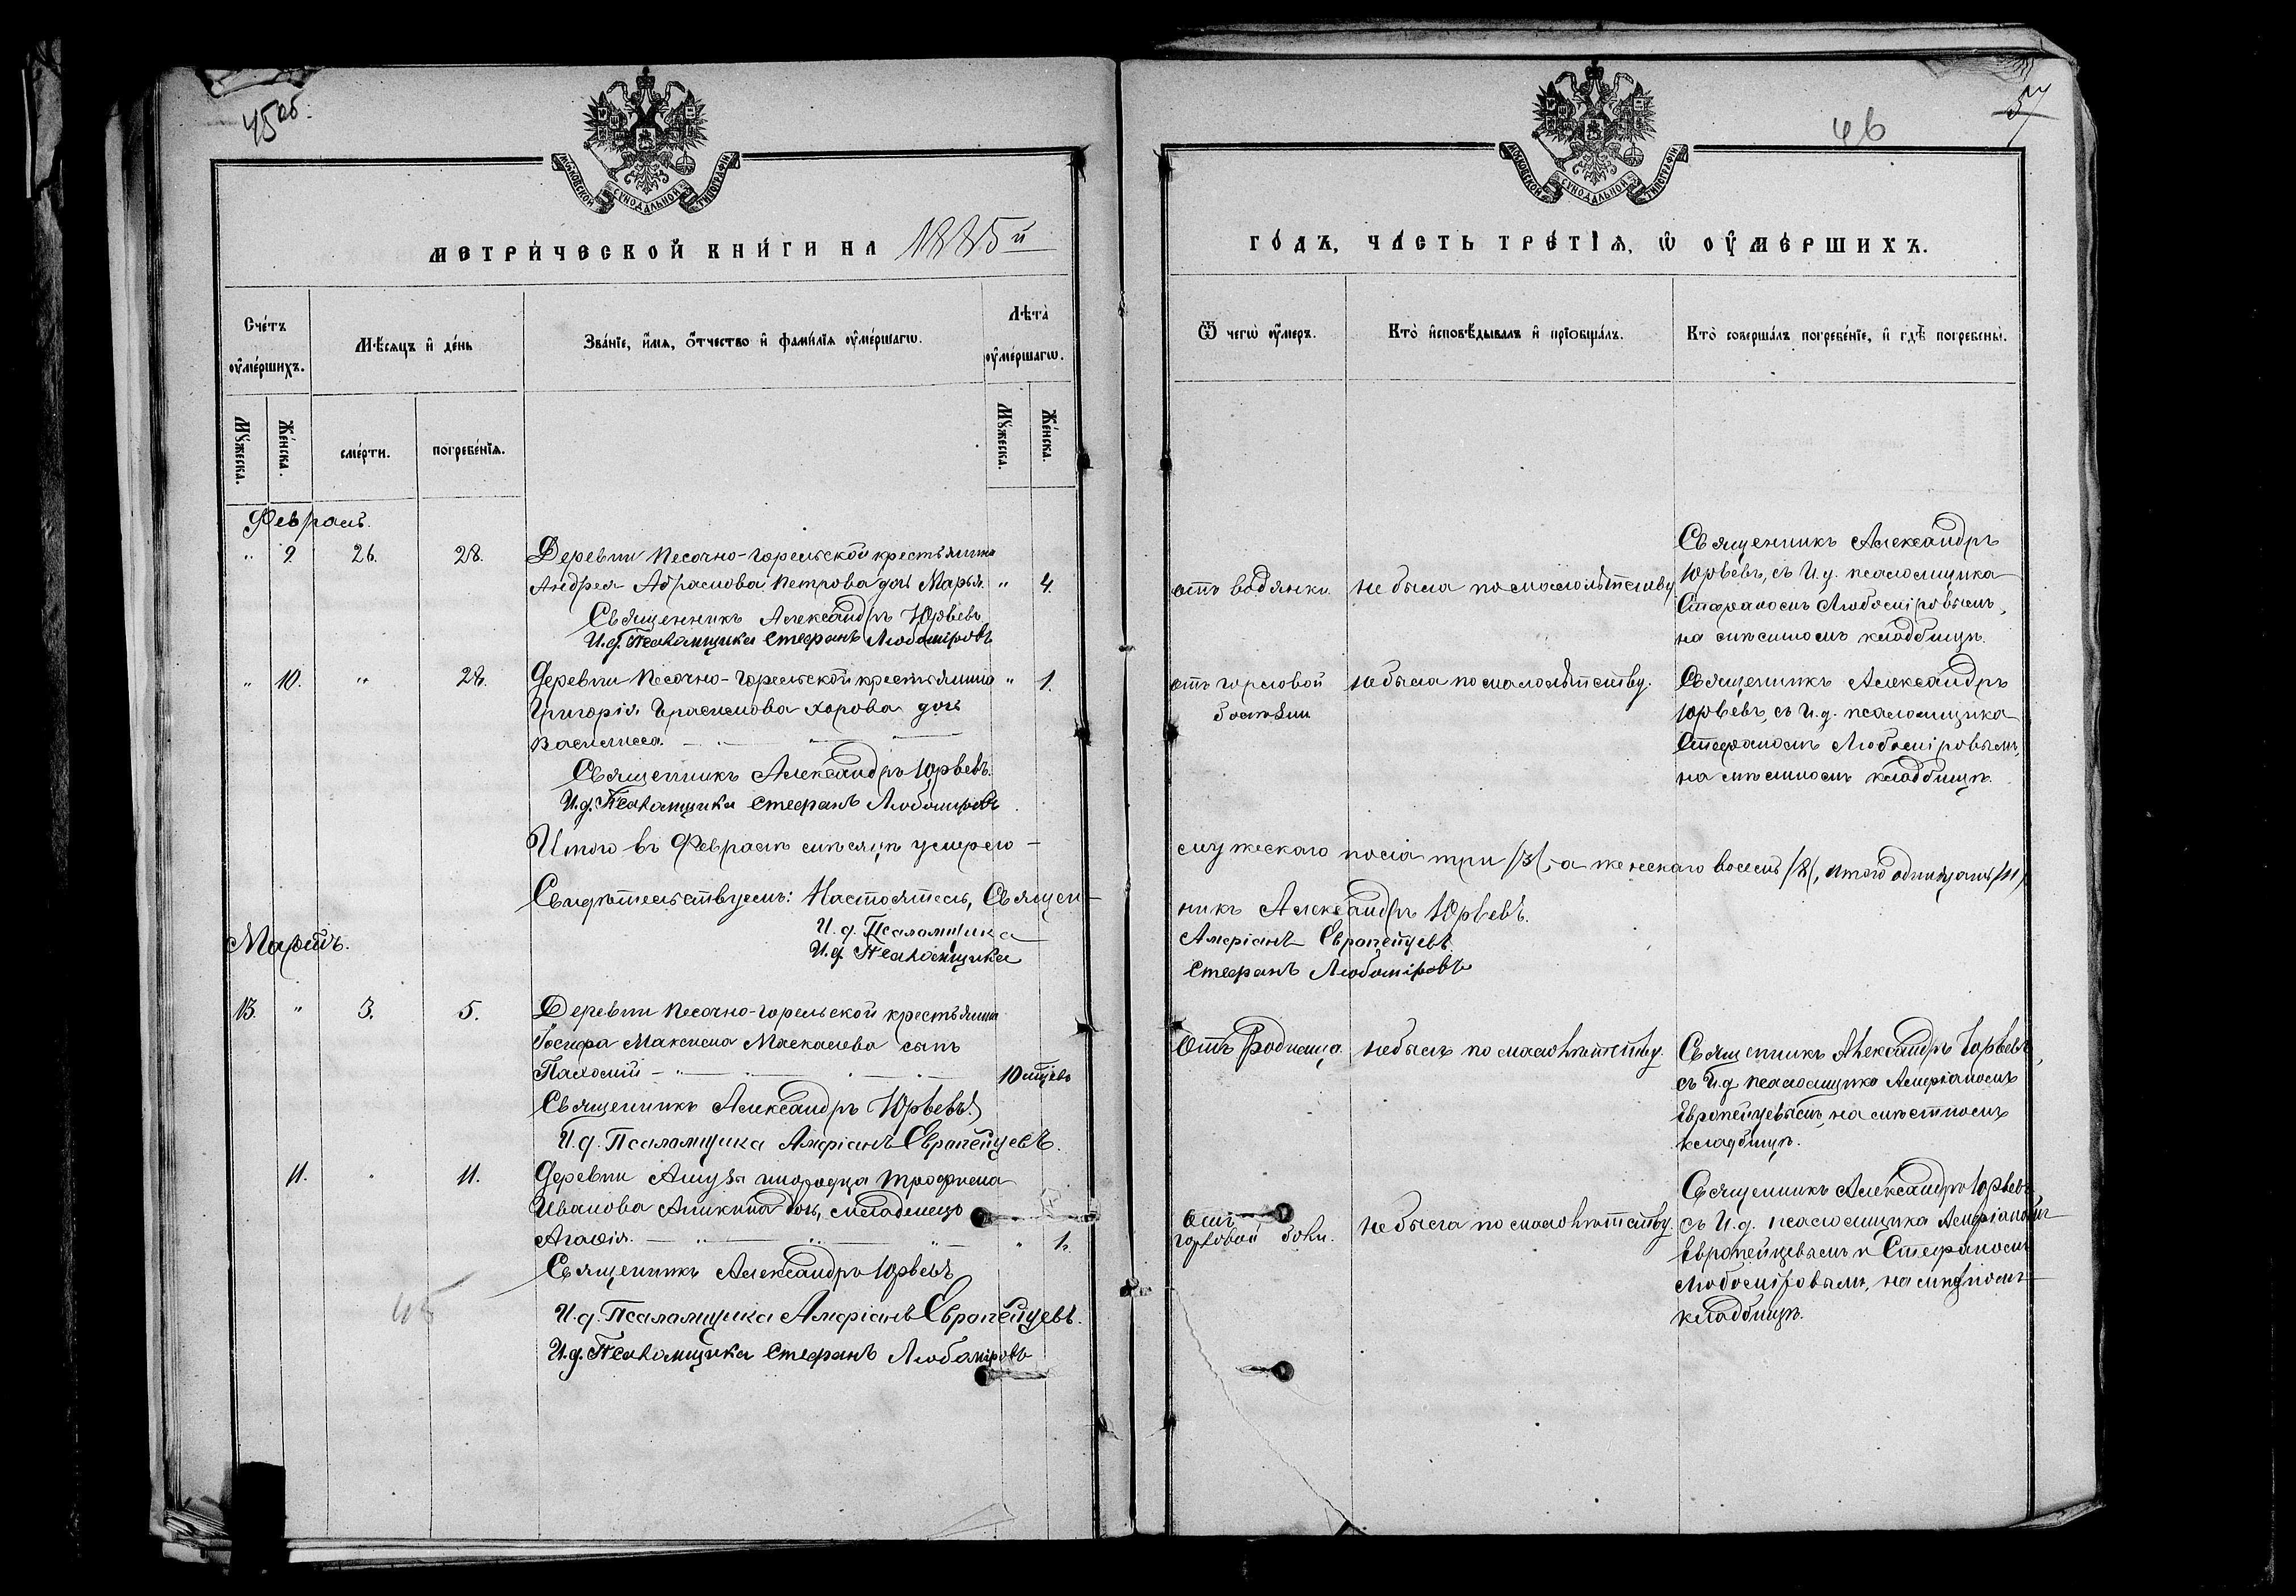 45 об.
МОСКОВСКОЙ СУНОДАЛЬНОЙ ТИПОГРАФІИ
МЕТРИЧЕСКОЙ КНИГИ НА 1885й
Счетъ оумершихъ.
Мѣсяцъ и день
Званіе, имя, отчество и фамилія оумершагѡ.
Лѣта оумершагѡ.
Мужеска.
Женска.
смерти.
погребенія.
Мужеска.
Женска.
Февраль.
" 9. 26. 28. Деревни Песочно-Горельской крестьянина
Андрея Абрамова Петрова дочь Марья. " 4.
Священникъ Александръ Юрьевъ
И.д. Псаломщика Стефанъ Любоміровъ
" 10. " 28. Деревни Песочно-Горельской крестьянина " 1.
Григорія Герасимова Хорова дочь
Василисса.
Священникъ Александръ Юрьевъ.
И.д. Псаломщика Стефанъ Любоміровъ
Итого въ Февралѣ мѣсяцѣ умерло
Свидѣтельствуемъ: Настоятель, Священ-
И. д. Псаломщика
Мартъ.
И.д. Псаломщика
13. " 3. 5. Деревни Песочно-Горельской крестьянина
Іосифа Максима сынъ
Пахомій 10 мцевъ
Священникъ Александръ Юрьевъ.
И.д. Псаломщика Амфіанъ Европейцевъ.
11. " 11. Деревни инородца Трофима
Иванова Аникина дочь, младенецъ
Агаѳія. " 1.
Священникъ Александръ Юрьевъ
И.д. Псаломщика Амфіанъ Европейцевъ.
И.д. Псаломщика Стефанъ Любоміровъ
46
57
МОСКОВСКОЙ СУНОДАЛЬНОЙ ТИПОГРАФІИ
ГОДЪ, ЧАСТЬ ТРЕТІЯ, Ѡ ОУМЕРШИХЪ.
Ѿ чегѡ оумеръ.
Кто исповѣдывалъ и пріобщалъ.
Кто совершалъ погребеніе, и гдѣ погребены.
отъ водянки.
не была по малолѣтству
Священникъ Александръ
Юрьевъ, съ И.д. псаломщика
Стефаномъ Любоміровымъ,
на мѣстномъ кладбищѣ.
отъ горловой
болѣзни
не была по малолѣтству.
Священникъ Александръ
Юрьевъ, съ И.д. псаломщика
Стефаномъ Любоміровымъ,
на мѣстномъ кладбищѣ.
мужескаго пола три /3/, а женскаго восемь /8/, итого одинадцать /11/
никъ Александръ Юрьевъ.
Амфіанъ Европейцевъ.
Стефанъ Любоміровъ
Отъ Родимца.
не былъ по малолѣтству.
Священникъ Александръ Юрьевъ,
съ И.д псаломщика Амфіаномъ
Европейцевымъ, на мѣстномъ
кладбищѣ.
Отъ
горловой боли.
не была по малолѣтству.
Священникъ Александръ Юрьевъ
съ И.д. псаломщика Амфіаномъ
Европейцевымъ и Стефаномъ
Любоміровымъ, на мѣстномъ
кладбищѣ.